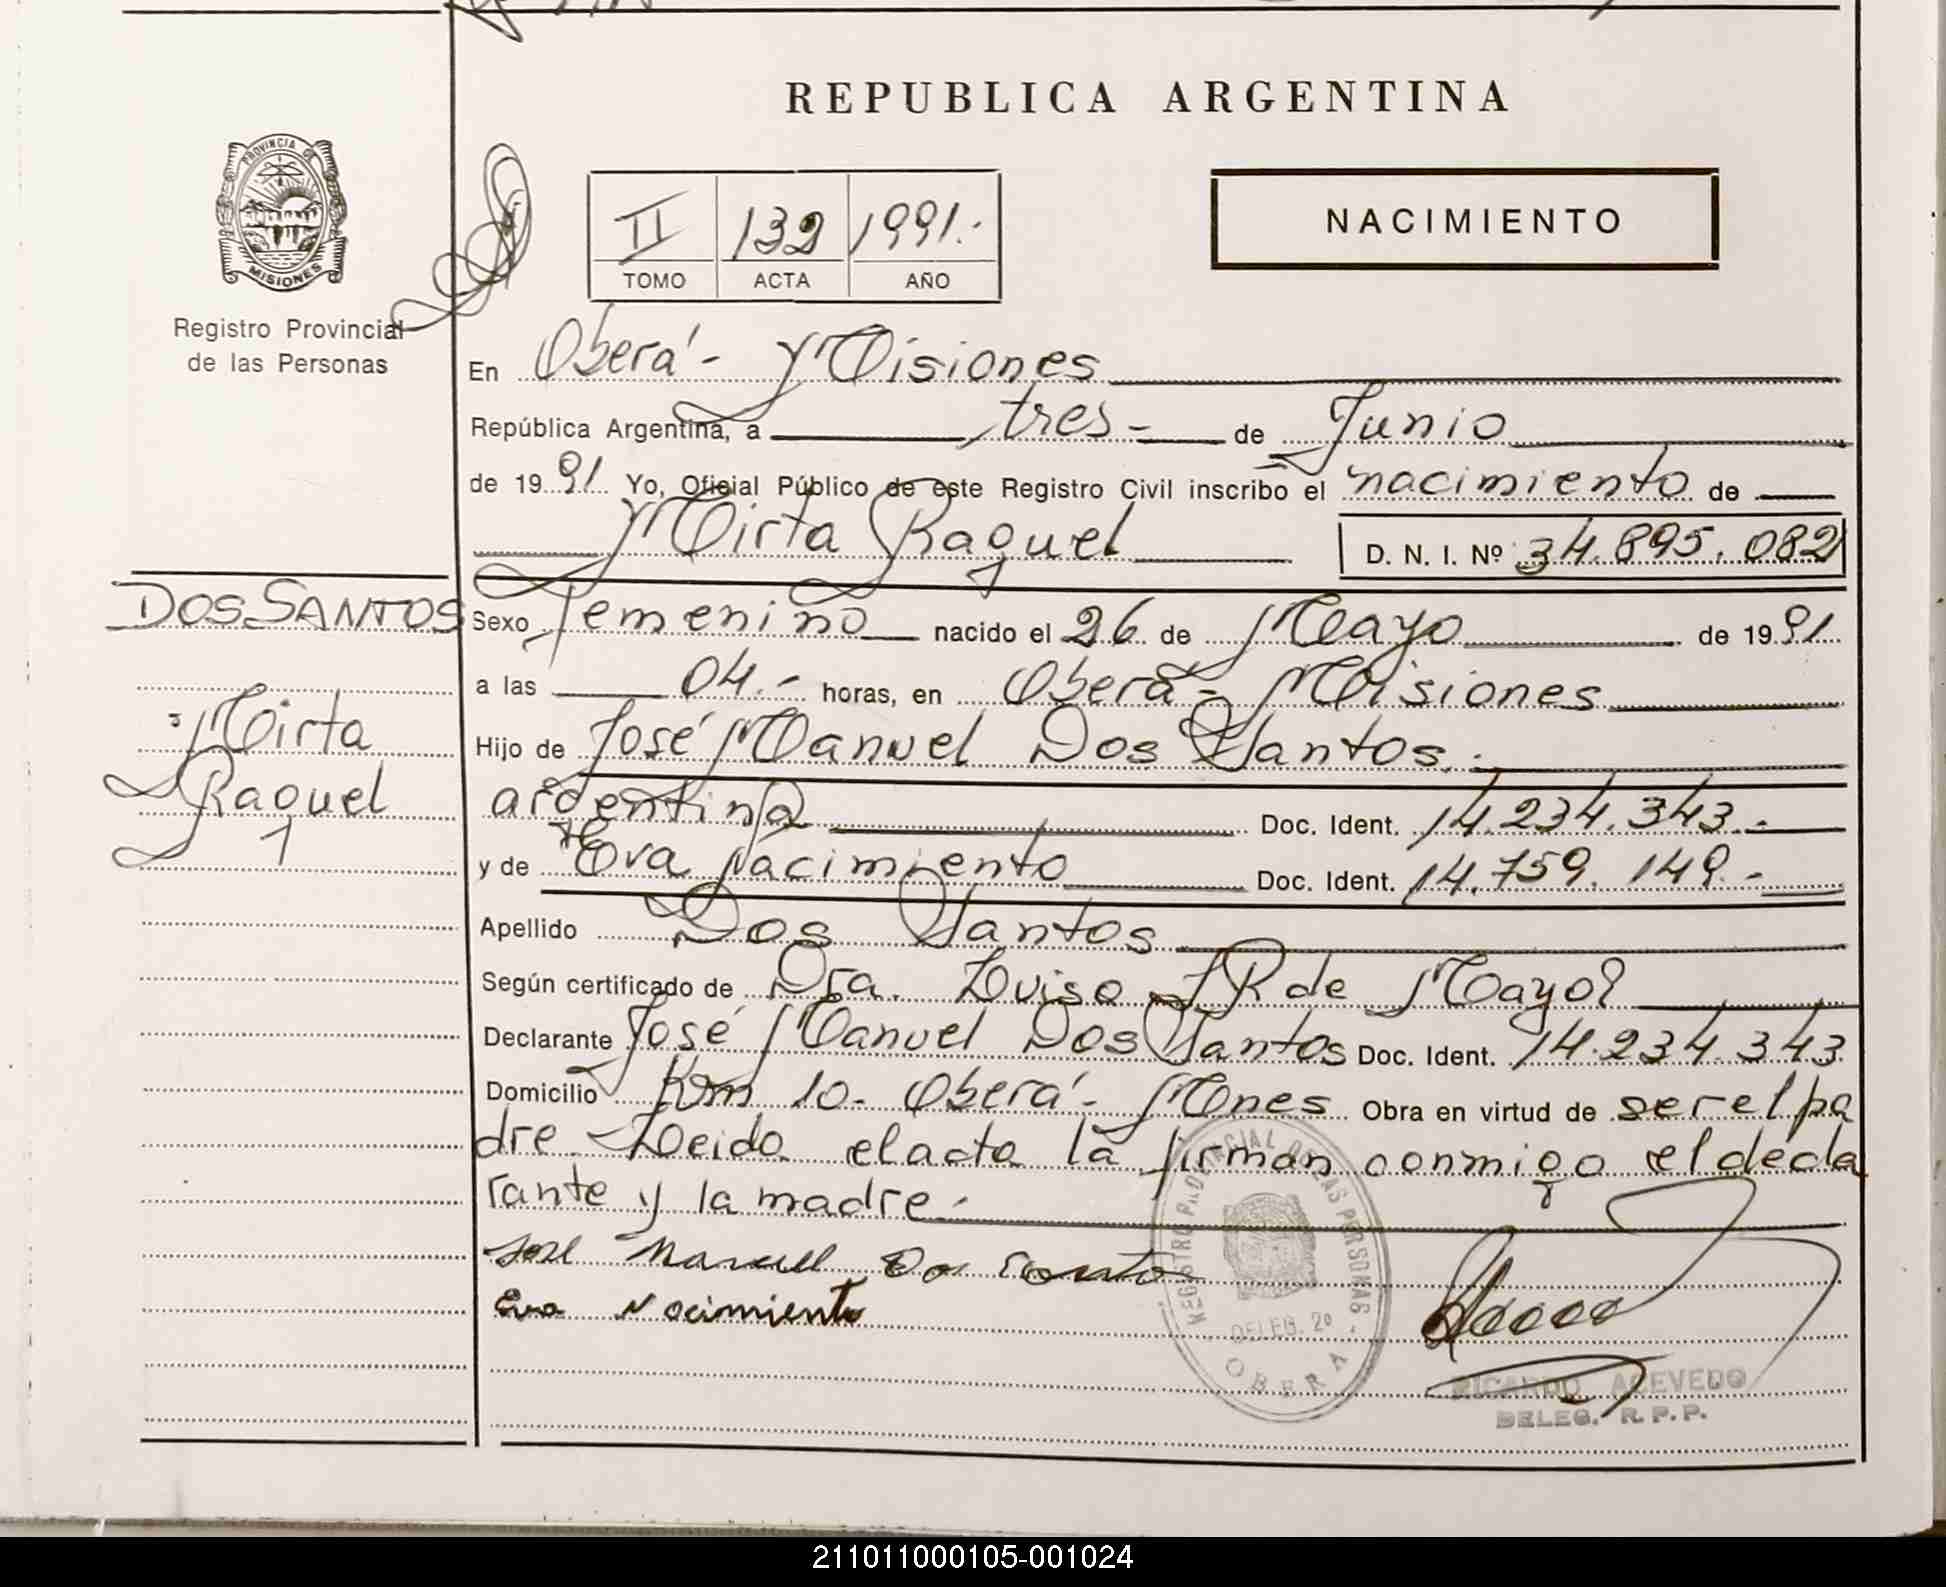 REPUBLICA ARGENTINA
PROVINCIA DE
MISIONES
Registro Provincial
de las Personas
II 132 1991.-
TOMO ACTA AÑO
NACIMIENTO
En Oberá - Misiones
República Argentina, a tres - de Junio
de 1991 Yo, Oficial Público de este Registro Civil inscribo el nacimiento de
Mirta Raquel D. N. I. Nº 34.895.082
DOS SANTOS
Mirta
Raquel
Sexo femenino nacido el 26 de Mayo de 1991
a las 04.- horas, en Oberá - Misiones
Hijo de José Manuel Dos Santos.
argentina Doc. Ident. 14.234.343.-
y de Eva Nacimiento Doc. Ident. 14.759.149.-
Apellido Dos Santos
Según certificado de Dra. Luisa R de Mayol
Declarante José Manuel Dos Santos Doc. Ident. 14.234.343
Domicilio Km 10- Oberá - Mnes Obra en virtud de ser el pa
dre. Leida el acta la firman conmigo el decla
rante y la madre.-
José Manuel Dos Santos
Eva Nacimiento
REGISTRO PROVINCIAL DE LAS PERSONAS
DELEG. 2º
OBERA
RICARDO ACEVEDO
DELEG. R.P.P.
211011000105-001024